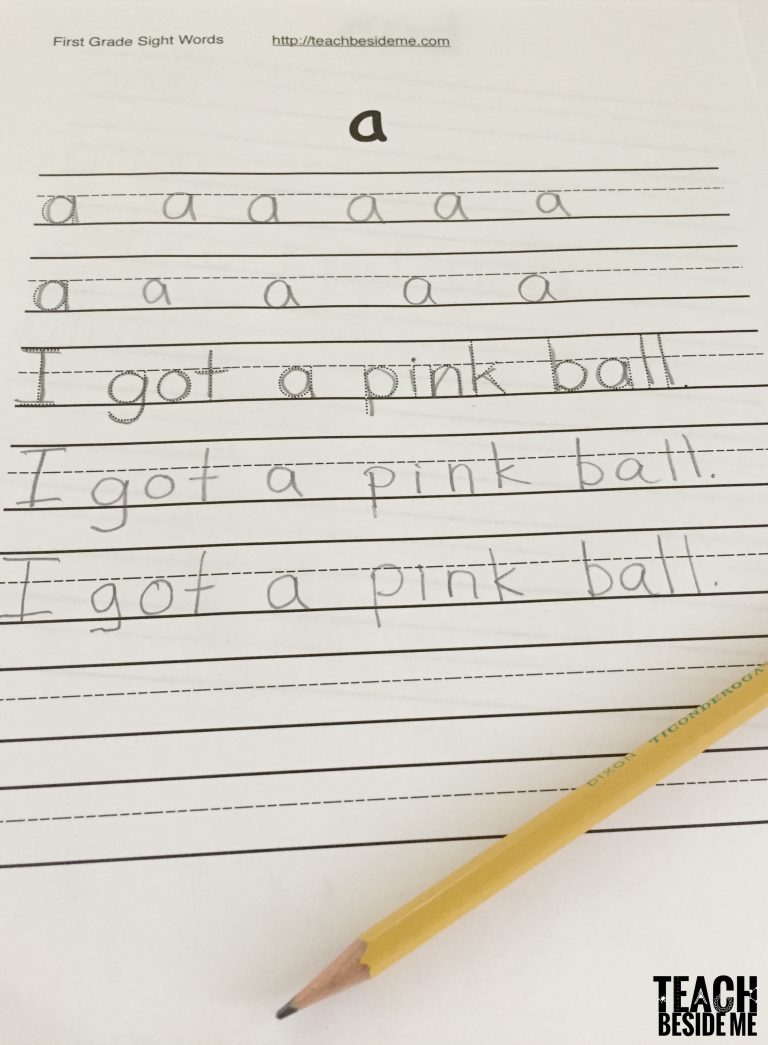 First Grade Sight Words http://teachbesideme.com
a
a a a a a a
a a a a a
I got a pink ball.
I got a pink ball.
I got a pink ball.
DIXON TICONDEROGA
TEACH
BESIDE ME